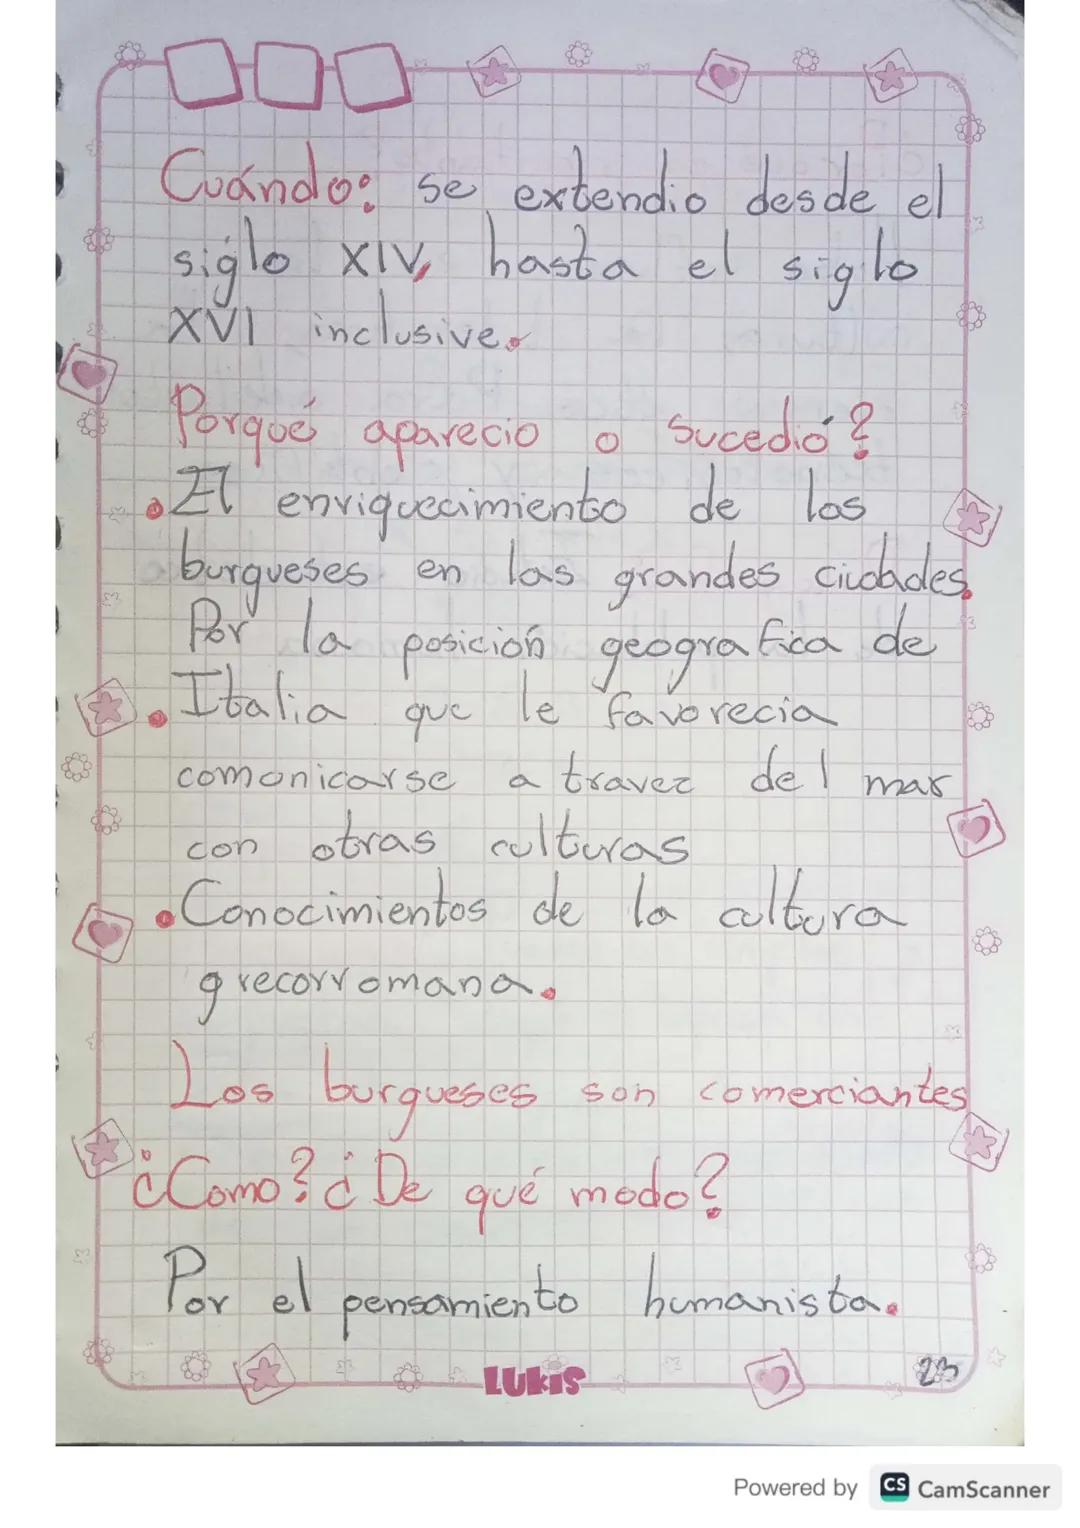 Cuándo: se extendio desde el
siglo XIV, hasta el siglo
XVI inclusive.
Porqué aparecio o sucedió?
• El enriquecimiento de los
burgueses en las grandes ciudades.
Por la posición geografica de
• Italia que le favorecia
comonicarse a travez del mar
con otras culturas
• Conocimientos de la cultura
grecorromana.
Los burgueses son comerciantes
¿Como? ¿De qué modo?
Por el pensamiento humanista.
LUKIS
23
Powered by CS CamScanner